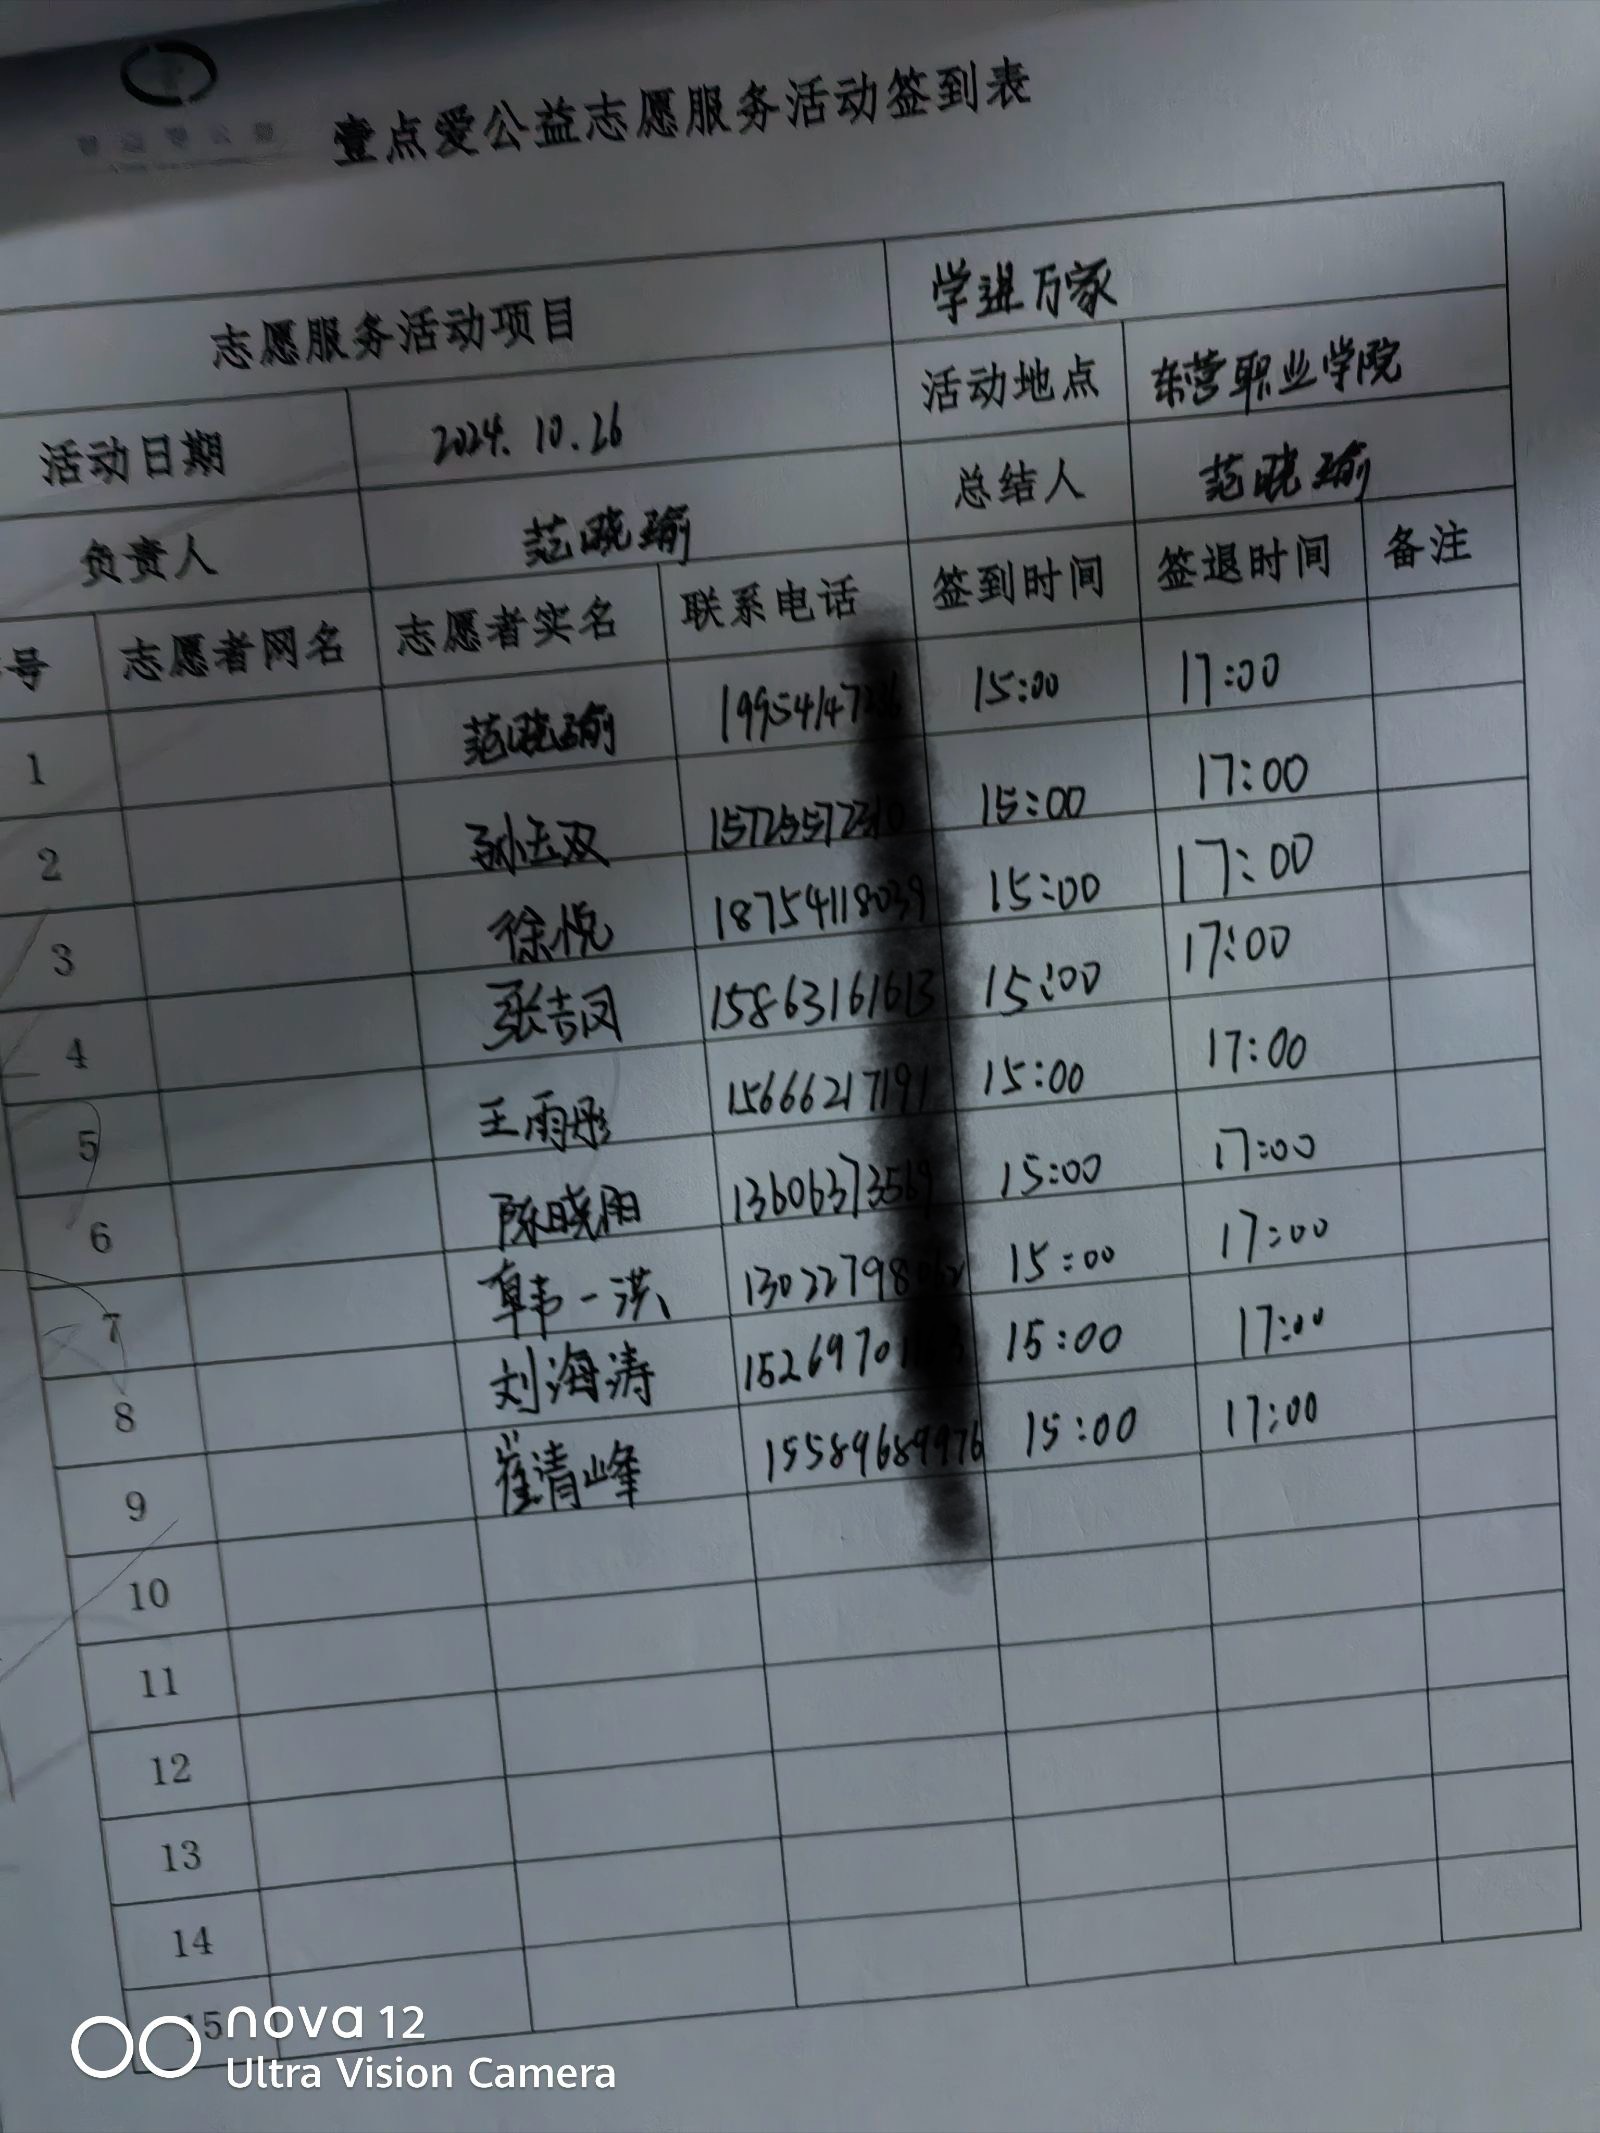 壹点爱公益志愿服务活动签到表
志愿服务活动项目 学进万家
活动日期 2024.10.26 活动地点 东营职业学院
负责人 范晓瑜 总结人 范晓瑜
号 志愿者网名 志愿者实名 联系电话 签到时间 签退时间 备注
1 范晓瑜 19954147 15:00 17:00
2 孙玉双 15725572 15:00 17:00
3 徐悦 18754118 15:00 17:00
4 张吉凤 15863161 15:00 17:00
5 王雨彤 15666217 15:00 17:00
6 陈晓阳 13606373 15:00 17:00
7 韩一洪 1302279 15:00 17:00
8 刘海涛 1526970 15:00 17:00
9 崔清峰 1558968 15:00 17:00
10
11
12
13
14
15
nova 12
Ultra Vision Camera